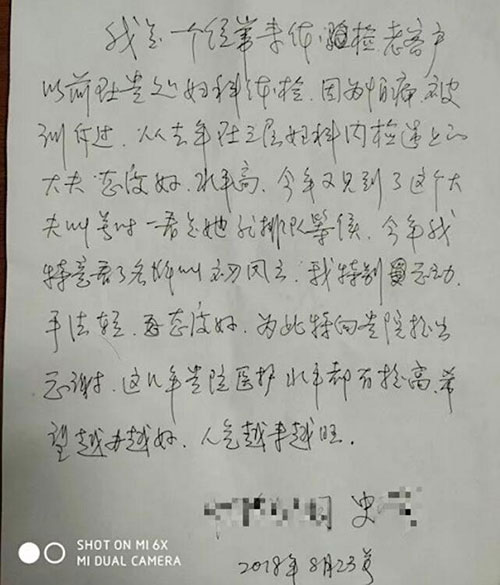 我是一个经常来体检老客户
以前在贵处妇科体检,因为怕痛被
训斥过,从去年在三层妇科内检遇上的
大夫态度好,水平高,今年又见到了这个大
夫叫号时一看是她就排队等候,今年我
特意看了名师叫 风云,我特别感动,
手法轻,再态度好,为此特向贵院提出
感谢,这几年贵院医护水平都有提高,希
望越办越好,人气越来越旺.
史
2018年8月23号
SHOT ON MI 6X
MI DUAL CAMERA